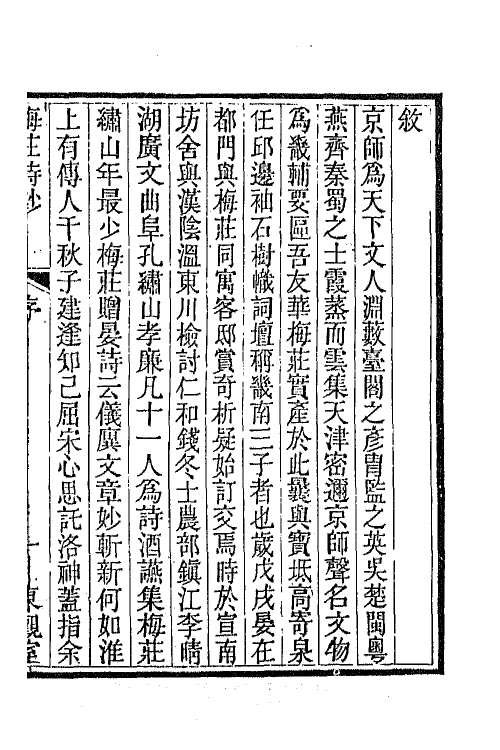 敘
京師為天下文人淵藪臺閣之彥胄監之英吳楚閩粵
燕齊秦蜀之士霞蒸而雲集天津密邇京師聲名文物
為畿輔要區吾友華梅莊實產於此曩與寶坻高寄泉
任邱邊袖石樹幟詞壇稱畿南三子者也歲戊戌晏在
都門與梅莊同寓客邸賞奇析疑始訂交焉時於宣南
坊舍與漢陰溫東川檢討仁和錢冬士農部鎮江李晴
湖廣文曲阜孔繡山孝廉凡十一人為詩酒讌集梅莊
繡山年最少梅莊贈晏詩云儀廙文章妙斬新何如淮
上有傳人千秋子建逢知己屈宋心思託洛神蓋指余
梅莊詩鈔
序
一
東觀室